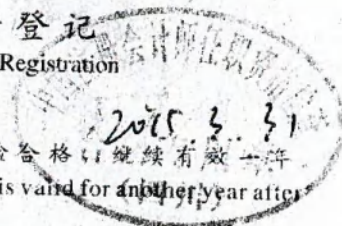 登记
Registration
会计师任职资
2015.3.31
合格,继续有效一年
is valid for another year after